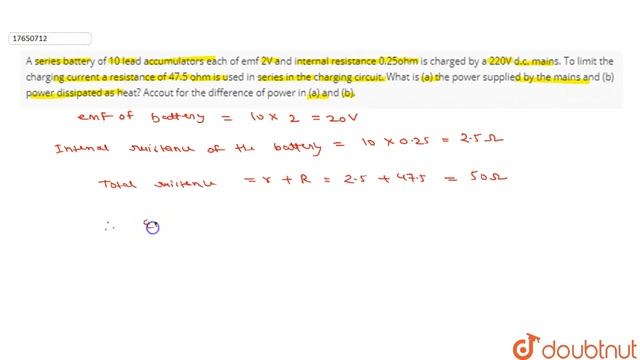 17650712
A series battery of 10 lead accumulators each of emf 2V and internal resistance 0.25ohm is charged by a 220V d.c. mains. To limit the
charging current a resistance of 47.5 ohm is used in series in the charging circuit. What is (a) the power supplied by the mains and (b)
power dissipated as heat? Accout for the difference of power in (a) and (b).
emf of battery = 10 × 2 = 20V
Internal resistance of the battery = 10 × 0.25 = 2.5 Ω
Total resistance = r + R = 2.5 + 47.5 = 50Ω
∴
doubtnut